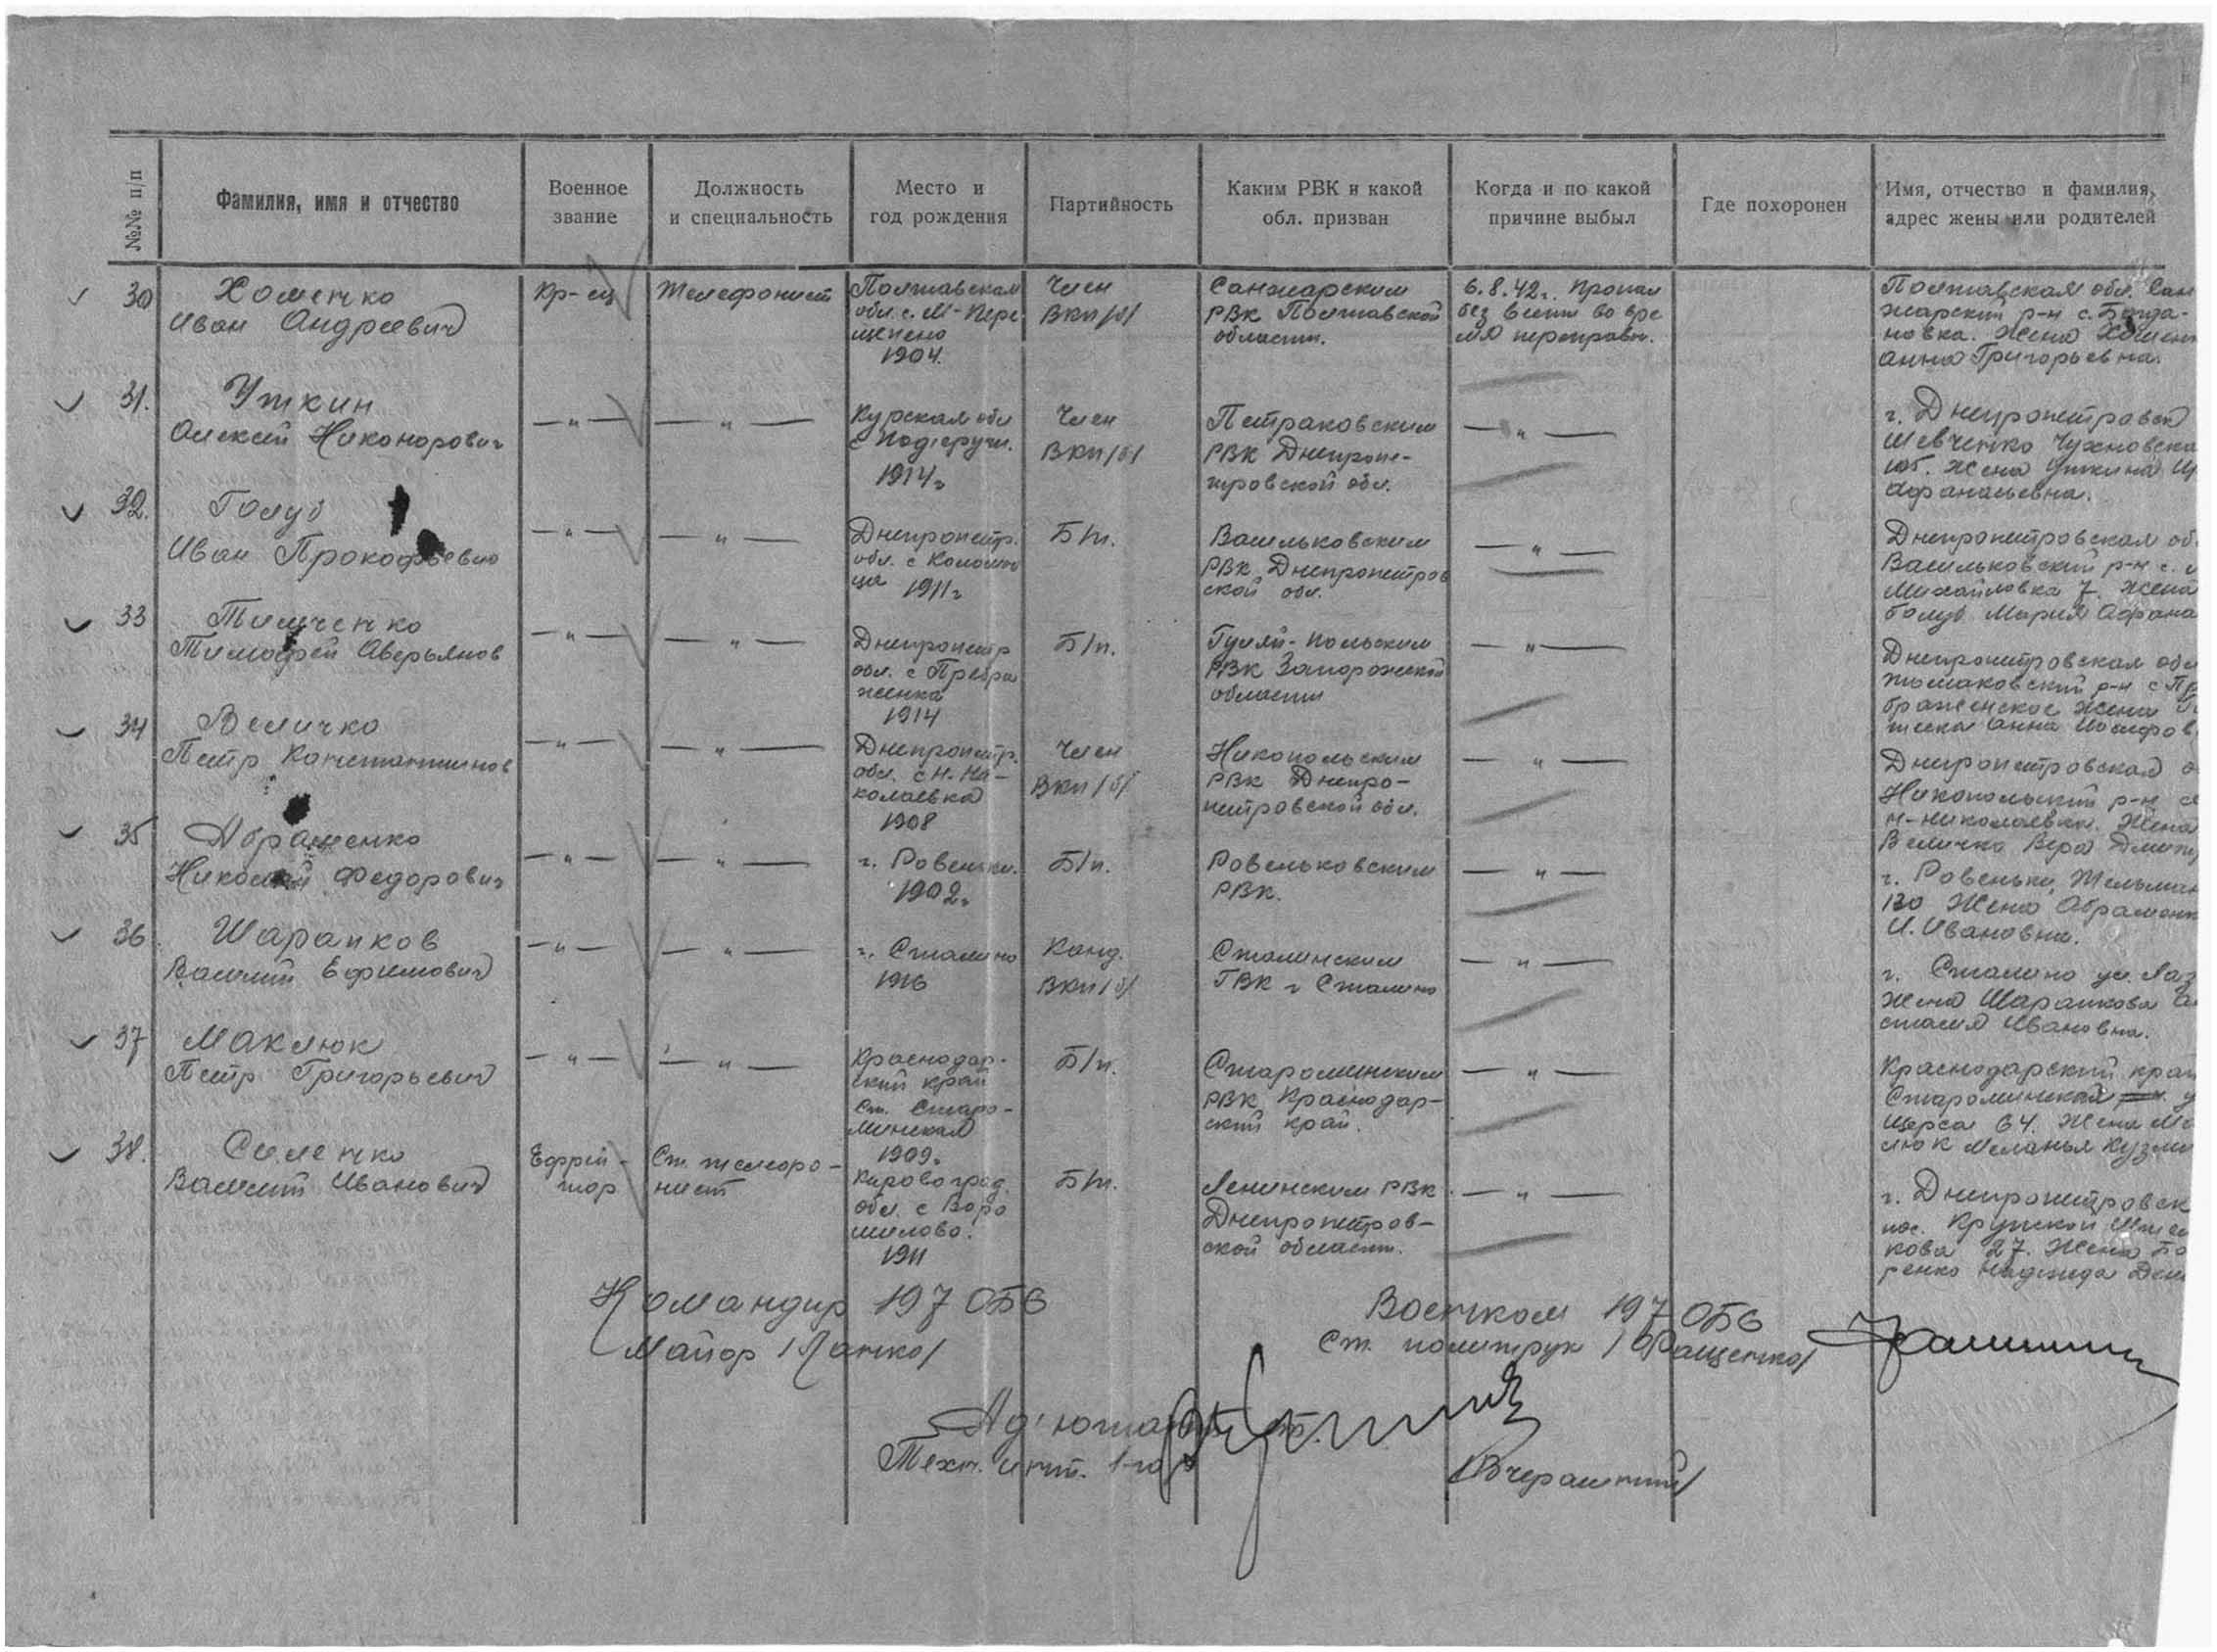 №№ п/п
Фамилия, имя и отчество
Военное
звание
Должность
и специальность
Место и
год рождения
Партийность
Каким РВК и какой
обл. призван
Когда и по какой
причине выбыл
Где похоронен
Имя, отчество и фамилия,
адрес жены или родителей
30
Хоменко
Иван Андреевич
Кр-ец
Телефонист
Полтавская
обл. с. М-Пере
щепено
1904.
Член
ВКП/б/
Санжарским
РВК Полтавской
области.
6.8.42г. Пропал
без вести во вре
мя переправы.
Полтавская обл. Сан
жарский р-н с. Богда-
новка. Жена Хоменк
Анна Григорьевна.
31.
Уткин
Алексей Никонорович
—〃—
—〃—
Курская обл
с
1914г
Член
ВКП/б/
Петраковским
РВК Днепропе-
тровской обл.
—〃—
г. Днепропетровск
Шевченко
Жена Уткина
Афанасьевна.
32.
Голуб
Иван Прокофьевич
—〃—
—〃—
Днепропетр.
обл. с
1911г
Б/п.
Васильковским
РВК Днепропетров
ской обл.
—〃—
Днепропетровская об.
Васильковский р-н с.
Михайловка 7. Жена
Голуб Мария Афана
33
Тимченко
Тимофей Аверьянов
—〃—
—〃—
Днепропетр
обл. с Пребра
женка
1914
Б/п.
Гуляй-Польским
РВК Запорожской
области
—〃—
Днепропетровская обл
Томаковский р-н с Пр
браженское жена
Анна Иосифов
34
Величко
Петр Константинов
—〃—
—〃—
Днепропетр.
обл. с Н. Ни-
колаевка
1908
Член
ВКП/б/
Никопольским
РВК Днепро-
петровской обл.
—〃—
Днепропетровская о
Никопольский р-н с
Н-Николаевка. Жена
Величко Вера Дмитр
35
Абраменко
Николай Федорович
—〃—
—〃—
г. Ровеньки.
1902г
Б/п.
Ровеньковским
РВК.
—〃—
г. Ровеньки, Тельман
130 Жена Абраменк
И. Ивановна.
36
Шарапков
Василий Ефимович
—〃—
—〃—
г. Сталино
1916
Канд.
ВКП/б/
Сталинским
ГВК г Сталино
—〃—
г. Сталино ул. Лаз
Жена Шарапкова А
стасия Ивановна.
37
Маклюк
Петр Григорьевич
—〃—
—〃—
Краснодар-
ский край
Ст. Старо-
минская
1909г
Б/п.
Староминским
РВК Краснодар-
ский край.
—〃—
Краснодарский край
Староминская у
Щерса 64. Жена Ма
люк Меланья Кузми
38.
Силенко
Василий Иванович
Ефрей-
тор
Ст. телефо-
нист
Кировоград.
обл. с Воро
шилово.
1911
Б/п.
Ленинским РВК
Днепропетров-
ской области.
—〃—
г. Днепропетровск
пос.
кова 27. Жена Бо
ренко Надежда Дени
Командир 197 ОБС
Майор /Ланко/
Военком 197 ОБС
Ст. политрук /Фращенко/
Ад'ютант ст.
Техн. инт. 1-го р
/Вчерашний/